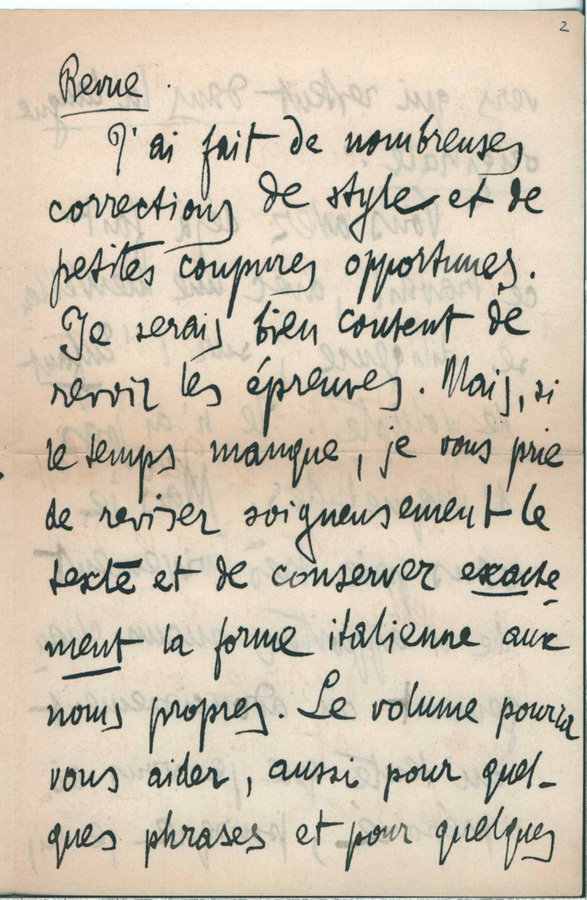 2
Revue.
J'ai fait de nombreuses
corrections de style et de
petites coupures opportunes.
Je serais bien content de
revoir les épreuves. Mais, si
le temps manque, je vous prie
de reviser soigneusement le
texte et de conserver exacte
ment la forme italienne aux
noms propres. Le volume pourra
vous aider, aussi pour quel-
ques phrases et pour quelques